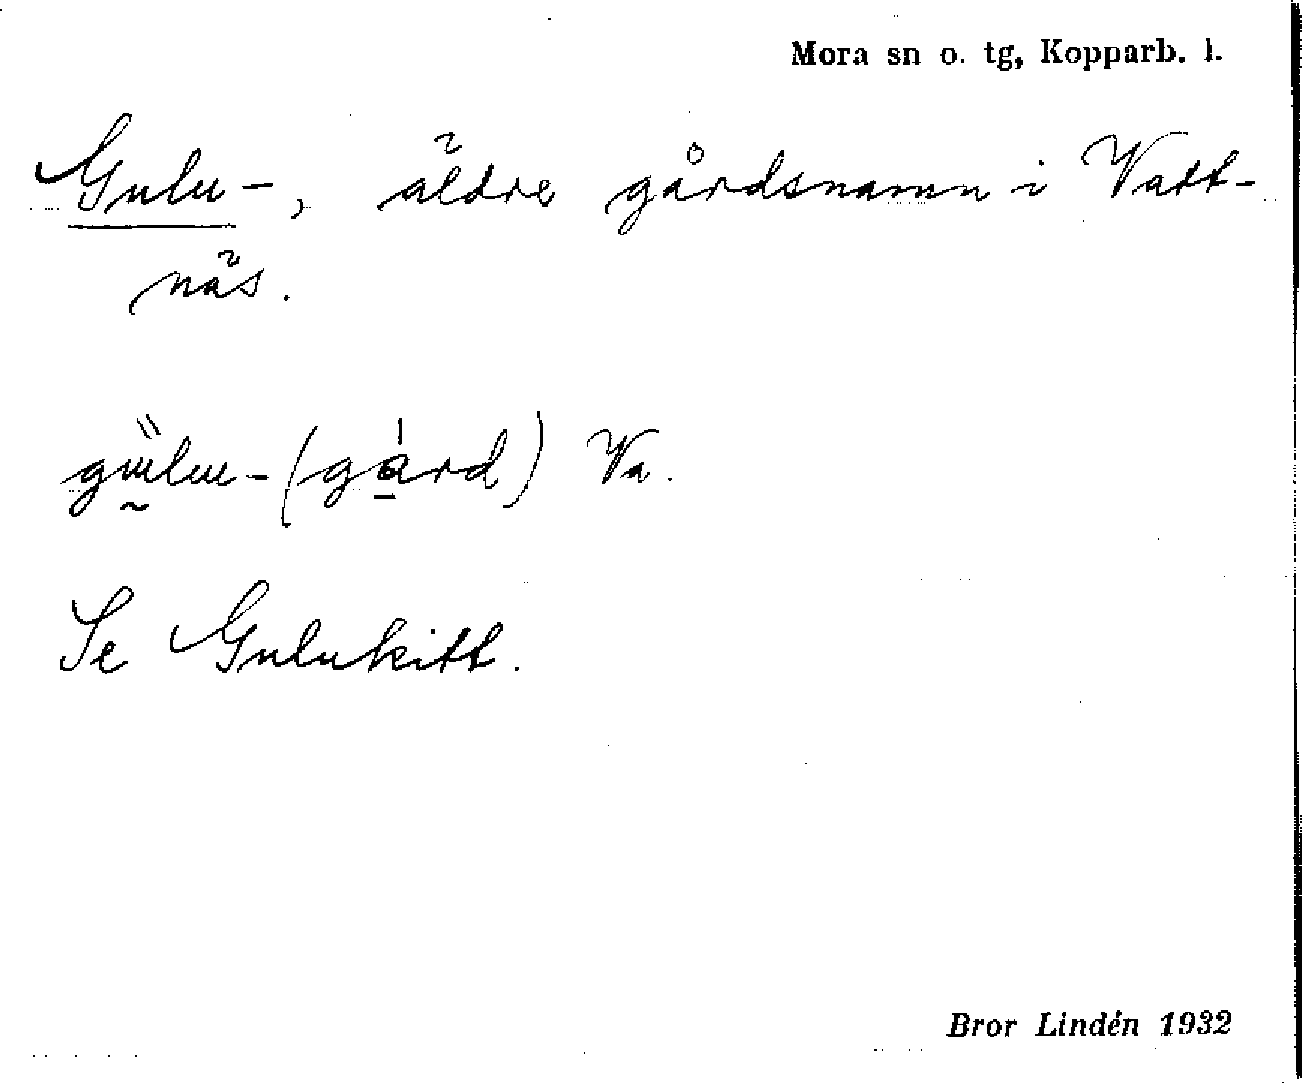 Mora sn o. tg, Kopparb. l.
Gulu-, äldre gårdsnamn i Vatt-
näs.
gɯ̰̋lɯ-(gá̱rd) Va.
Se Gulukitt.
Bror Lindén 1932